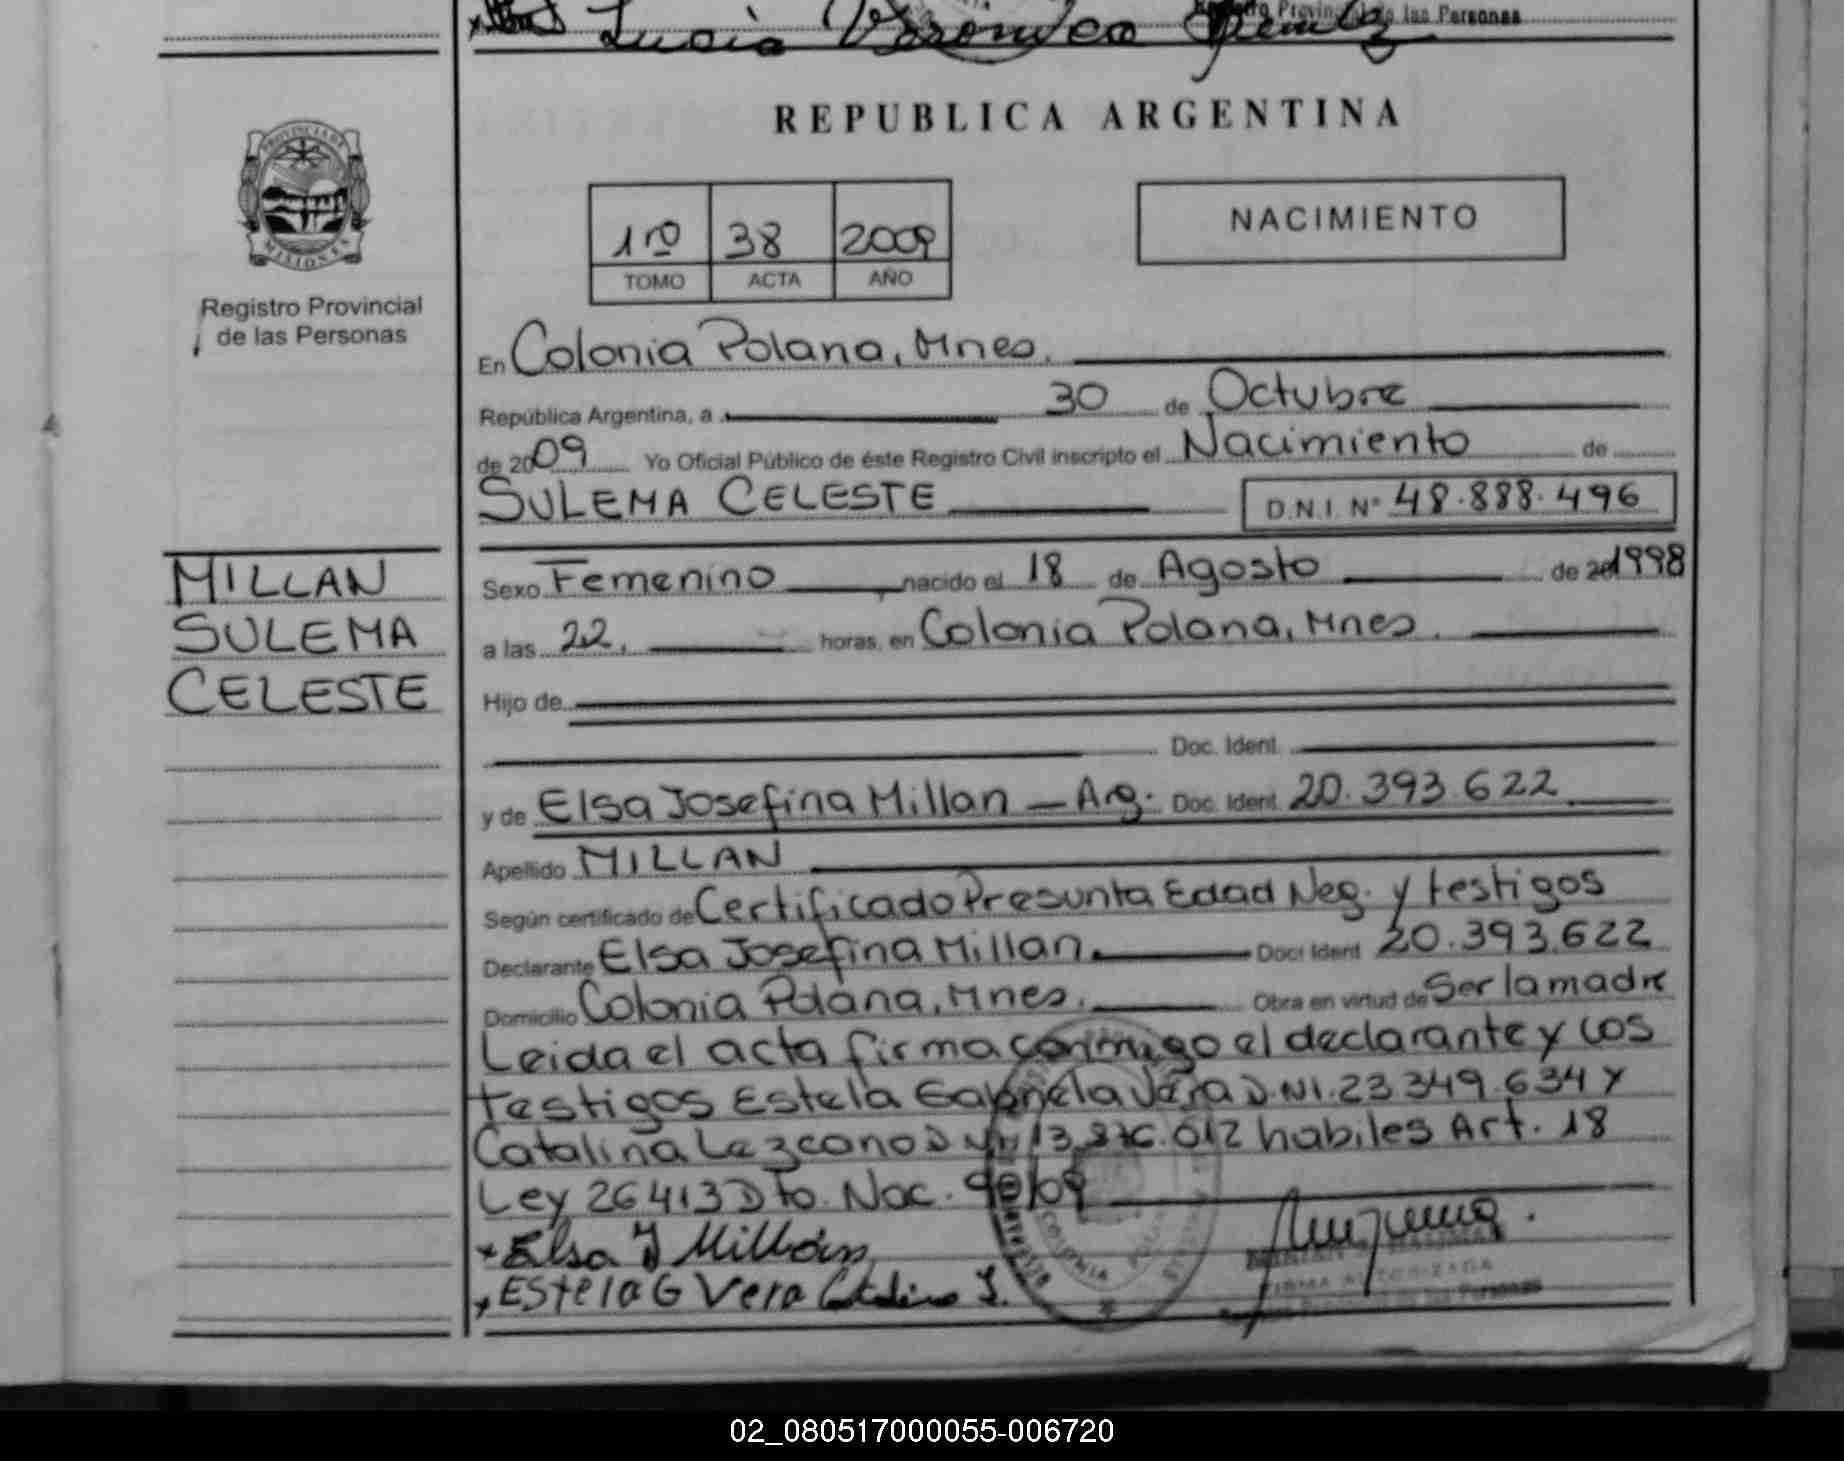 Lucia Veronica
Registro Provincial de las Personas
REPUBLICA ARGENTINA
PROVINCIA DE
MISIONES
Registro Provincial
de las Personas
1ro 38 2009
TOMO ACTA AÑO
NACIMIENTO
En Colonia Polana, Mnes.
República Argentina, a 30 de Octubre
de 2009 Yo Oficial Público de éste Registro Civil inscripto el Nacimiento de
SULEMA CELESTE D.N.I. Nº 48.888.496
MILLAN
SULEMA
CELESTE
Sexo Femenino nacido el 18 de Agosto de 201998
a las 22. horas, en Colonia Polana, Mnes.
Hijo de
Doc. Ident.
y de Elsa Josefina Millan - Arg. Doc. Ident. 20.393.622
Apellido MILLAN
Según certificado de Certificado Presunta Edad Neg. y testigos
Declarante Elsa Josefina Millan. Doc. Ident 20.393.622
Domicilio Colonia Polana, Mnes. Obra en virtud de Ser la madre
Leida el acta firma conmigo el declarante y los
testigos Estela Gabriela Vera D.NI.23.349.634 y
Catalina Lezcano D NI 13.876.012 habiles Art. 18
Ley 26413 Dto. Nac. 90/09
x Elsa J Millan
x Estela G Vera Catalina L.
COLONIA POLANA
FIRMA AUTORIZADA
Registro Provincial de las Personas
02_080517000055-006720